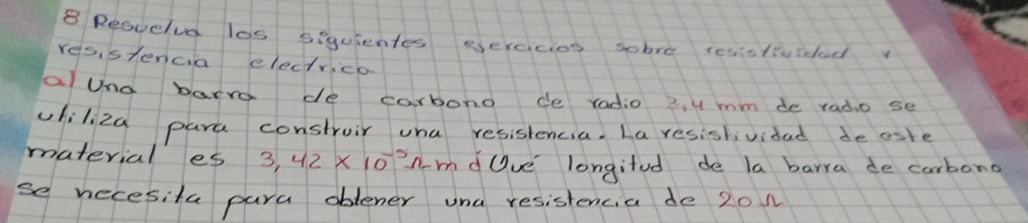 8 Resuelva los siguientes ejercicios sobre resistividad y
resistencia electrica.
a) Una barra de carbono de radio 2,4 mm de radio se
utiliza para construir una resistencia. La resistividad de este
material es 3,42 x 10⁻⁵ Ωm ¿Qué longitud de la barra de carbono
se necesita para obtener una resistencia de 20Ω